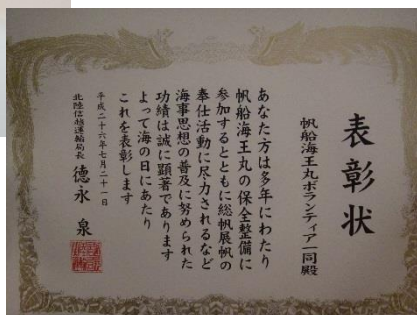 表彰状
帆船海王丸ボランティア一同殿
あなた方は多年にわたり
帆船海王丸の保全整備に
参加するとともに総帆展帆の
奉仕活動に尽力されるなど
海事思想の普及に努められた
功績は誠に顕著であります
よって海の日にあたり
これを表彰します
平成二十六年七月二十一日
北陸信越運輸局長 德永 泉